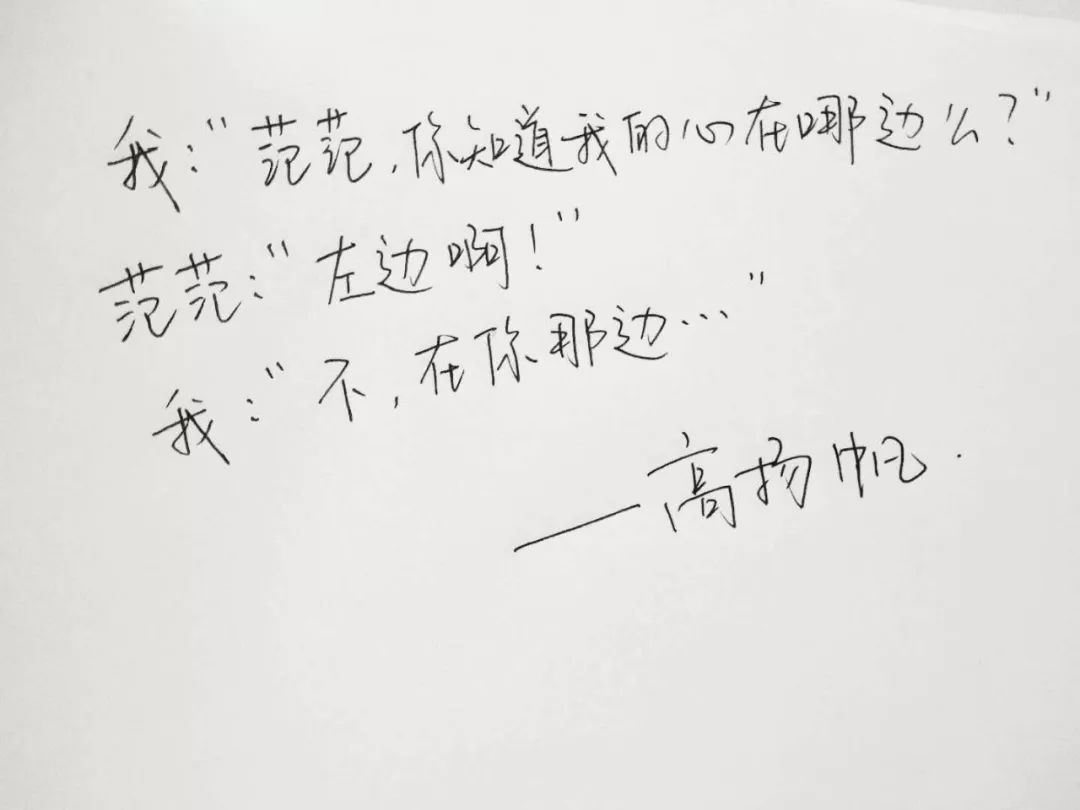 我：“范范，你知道我的心在哪边么？”
范范：“左边啊！”
我：“不，在你那边…”
——高扬帆.